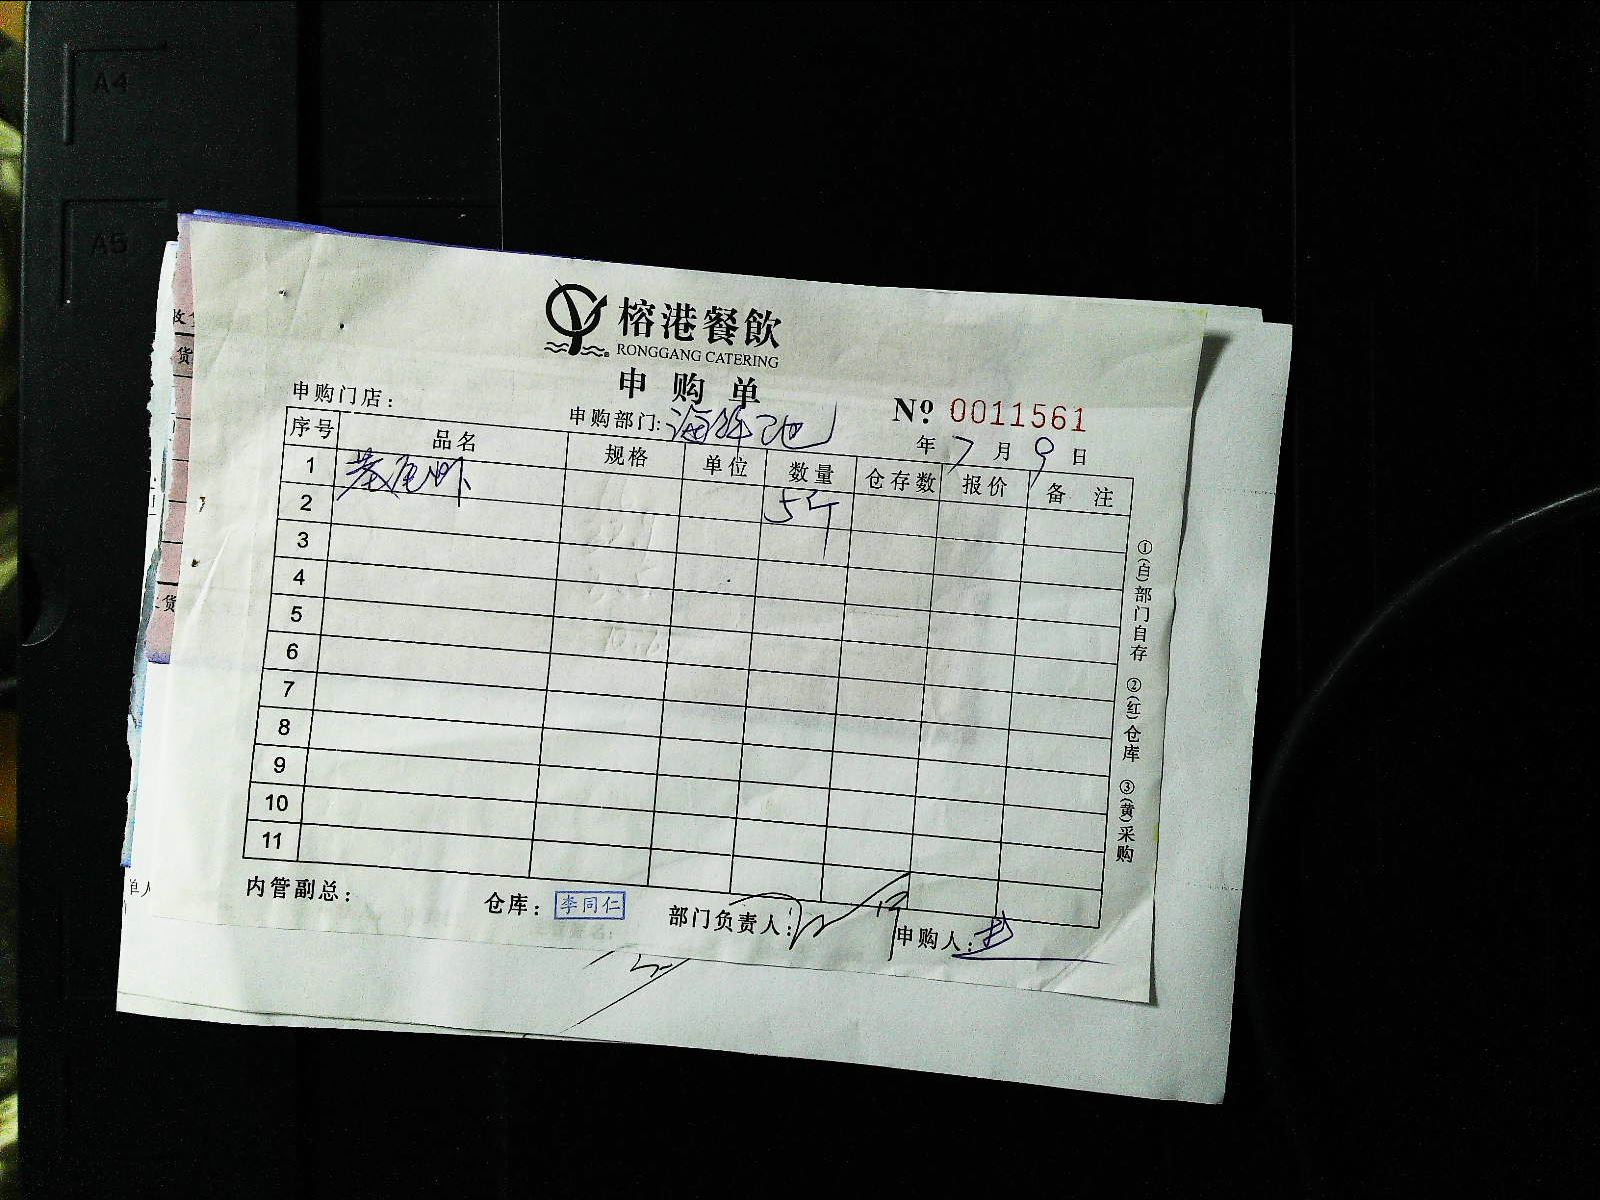 A4
A5
榕港餐飲
RONGGANG CATERING
申购单
申购门店：
申购部门：海鲜池
№ 0011561
年7月9日
序号 品名 规格 单位 数量 仓存数 报价 备注
1 基尾虾 5斤
2
3
4
5
6
7
8
9
10
11
①(白)部门自存 ②(红)仓库 ③(黄)采购
内管副总： 仓库：李同仁 部门负责人： 申购人：
货
货
单人